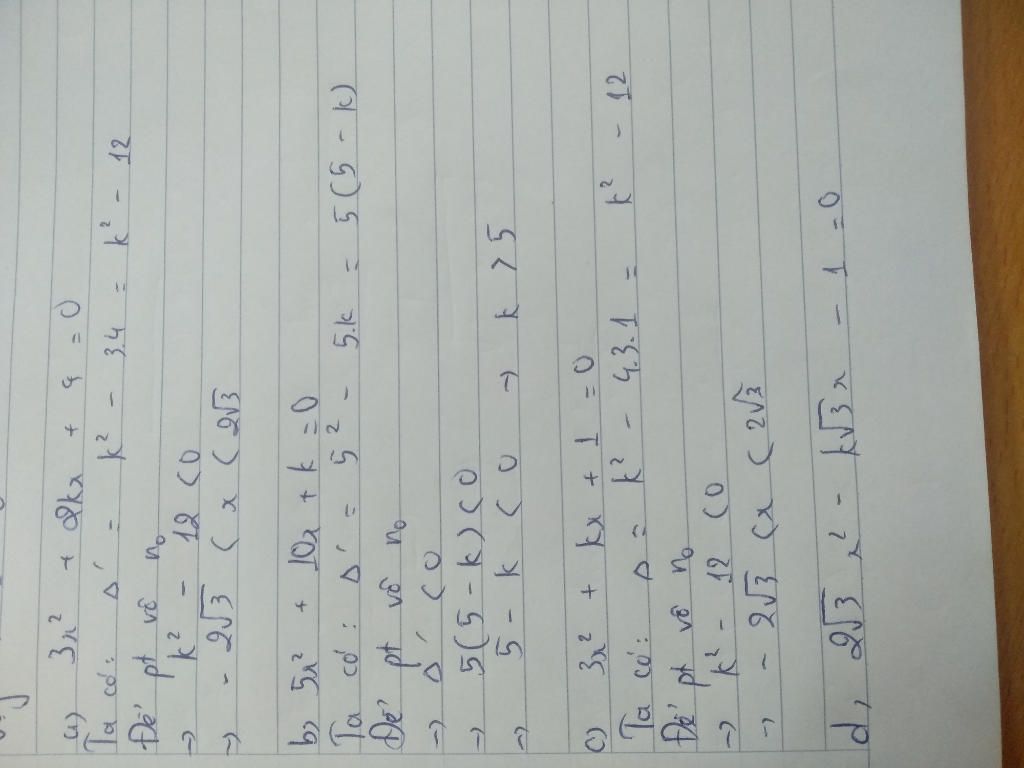 a) 3x² + 2kx + 4 = 0
Ta có: Δ' = k² - 3.4 = k² - 12
Để pt vô n₀
→ k² - 12 < 0
→ - 2√3 < x < 2√3
b) 5x² + 10x + k = 0
Ta có: Δ' = 5² - 5.k = 5(5 - k)
Để pt vô n₀
→ Δ' < 0
→ 5(5 - k) < 0
→ 5 - k < 0 → k > 5
c) 3x² + kx + 1 = 0
Ta có: Δ = k² - 4.3.1 = k² - 12
Để pt vô n₀
→ k² - 12 < 0
→ - 2√3 < x < 2√3
d, 2√3 x² - k√3x - 1 = 0